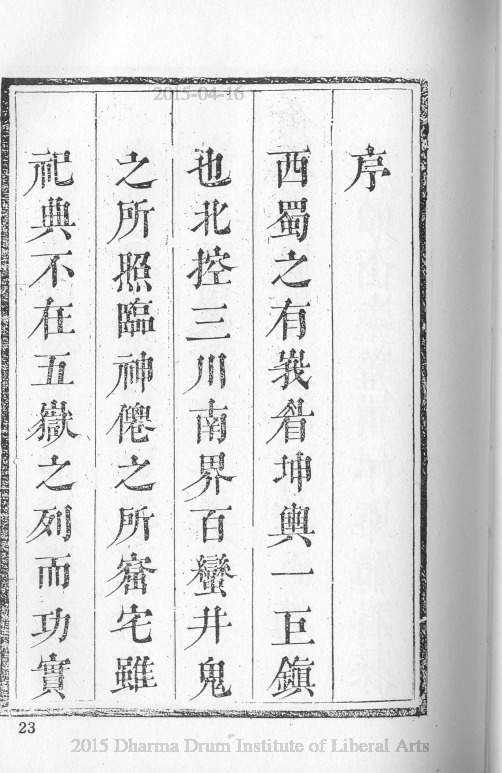 2015-04-16
序
西蜀之有峩眉坤輿一巨鎮
也北控三川南界百蠻井鬼
之所照臨神僊之所窟宅雖
祀典不在五嶽之列而功實
23
2015 Dharma Drum Institute of Liberal Arts